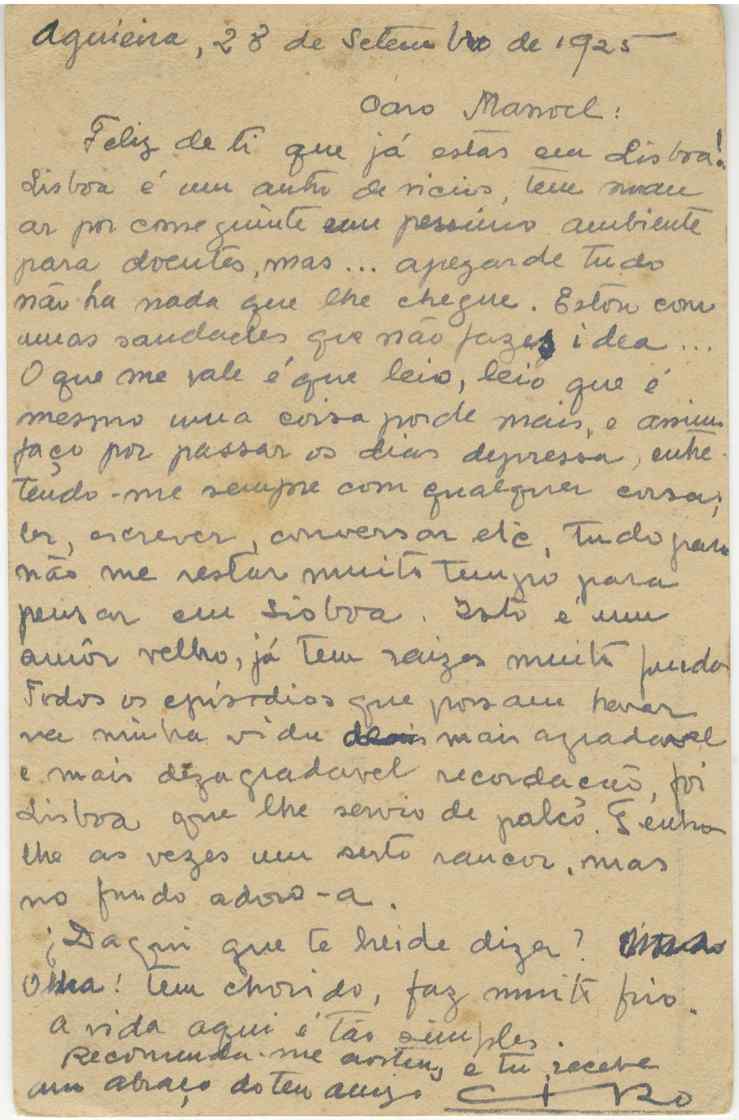 Aguieira, 28 de Setembro de 1925
Caro Manoel:
Feliz de ti que já estás em Lisboa!
Lisboa é um antro de vicios, tem mau
ar por conseguinte um pessimo ambiente
para doentes, mas... apezar de tudo
não ha nada que lhe chegue. Estou com
umas saudades que não fazes idea...
O que me vale é que leio, leio que é
mesmo uma coisa por de mais, e assim
faço por passar os dias depressa, entre-
tendo-me sempre com qualquer coisa;
ler, escrever, conversar etc, tudo para
não me restar muito tempo para
pensar em Lisboa. Isto é um
amôr velho, já tem raizes muito fundas
Todos os episodios que possam haver
na minha vida de mais agradavel
e mais dezagradavel recordação, foi
Lisboa que lhe servio de palco. Tenho
lhe as vezes um serto rancor, mas
no fundo adoro-a.
¿Daqui que te heide dizer?
Olha! tem chovido, faz muito frio.
A vida aqui é tão simples.
Recomenda-me aos teus, e tu recebe
um abraço do teu amigo